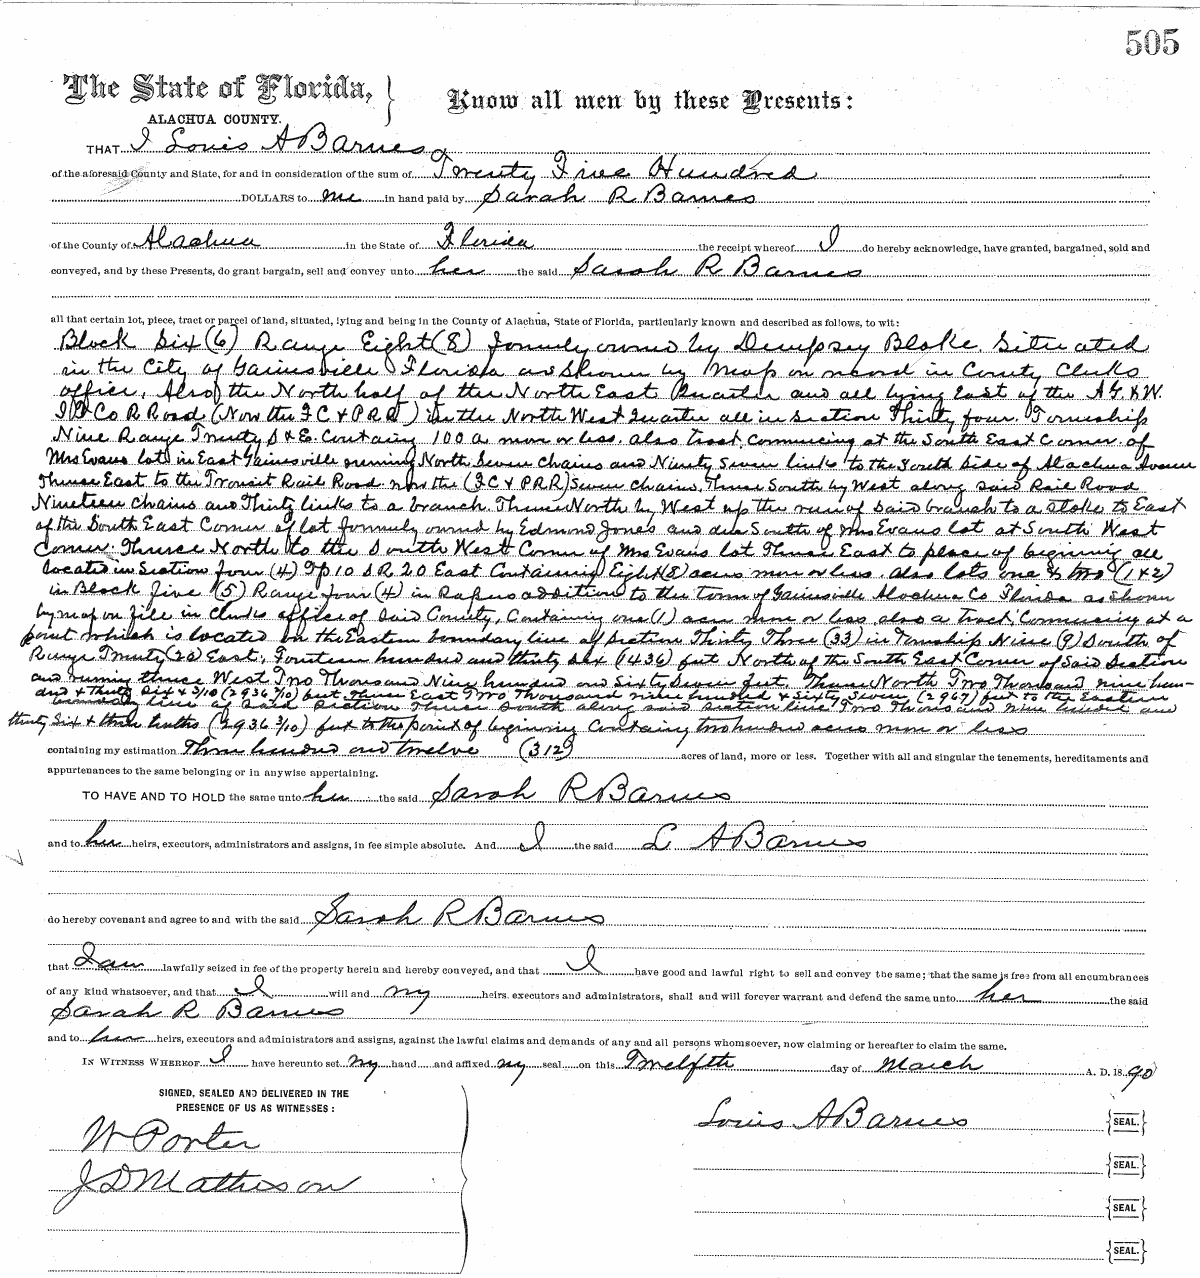 505
The State of Florida,
Know all men by these Presents:
ALACHUA COUNTY.
THAT I Louis A Barnes
of the aforesaid County and State, for and in consideration of the sum of Twenty Five Hundred
DOLLARS to me in hand paid by Sarah R Barnes
of the County of Alachua in the State of Florida the receipt whereof I do hereby acknowledge, have granted, bargained, sold and
conveyed, and by these Presents, do grant bargain, sell and convey unto her the said Sarah R Barnes
all that certain lot, piece, tract or parcel of land, situated, lying and being in the County of Alachua, State of Florida, particularly known and described as follows, to wit:
Block Six (6) Range Eight (8) formerly owned by Dempsey Blake. Situated
in the City of Gainsville Florida as Shown by Map on record in County Clerks
office. Also the North half of the North East Quarter and all lying East of the A.G. & W.
I Co R Road (Now the F C & P R R) in the North West Quarter all in Section Thirty four. Township
Nine Range Twenty S & E. Containg 100 a more or less. also tract Commencing at the South East Corner of
Mrs Evans lot in East Gainsville running North Seven chains and Ninety Seven links to the South Side of Alachua Avenue
Thence East to the Transit Rail Road. now the (F C & P R R) Seven Chains, Thence South by West along said Rail Road
Nineteen Chains and Thirty links to a branch. Thence North by West up the run of Said branch to a Stake to East
of the South East Corner of lot formerly owned by Edmond Jones and due South of Mrs Evans lot at South West
Corner. Thence North to the South West Corner of Mrs Evans lot Thence East to place of begining all
located in Section four (4) Tp 10 S R 20 East Containing Eight (8) acres more or less. also lots one & two (1 & 2)
in Block five (5) Range four (4) in addition to the town of Gainsville Alachua Co Florida as Shown
by map on file in clerks office of Said County, Containg one (1) acre more or less also a tract, Commencing at a
point which is located on the Eastern boundary line of Section Thirty Three (33) in Township Nine (9) South of
Range Twenty (20) East, Fourteen hundred and thirty Six (1436) feet North of the South East Corner of Said Section
and runing thence West Two Thousand Nine hundred and Sixty Seven feet, Thence North Two Thousand nine hun-
dred & thirty Six & 3/10 (2936 3/10) feet Thence East Two Thousand nine hundred & Sixty Seven (2967) feet to the Eastern
boundary line of Said Section Thence South along said Section line Two Thousand nine hundred and
thirty Six & three tenths (2936 3/10) feet to the point of begining Containg two hundred acres more or less
containing my estimation Three hundred and twelve (312) acres of land, more or less. Together with all and singular the tenements, hereditaments and
appurtenances to the same belonging or in anywise appertaining.
TO HAVE AND TO HOLD the same unto her the said Sarah R Barnes
and to her heirs, executors, administrators and assigns, in fee simple absolute. And I the said L A Barnes
do hereby covenant and agree to and with the said Sarah R Barnes
that I am lawfully seized in fee of the property herein and hereby conveyed, and that I have good and lawful right to sell and convey the same; that the same is free from all encumbrances
of any kind whatsoever, and that I will and my heirs. executors and administrators, shall and will forever warrant and defend the same unto her the said
Sarah R Barnes
and to her heirs, executors and administrators and assigns, against the lawful claims and demands of any and all persons whomsoever, now claiming or hereafter to claim the same.
IN WITNESS WHEREOF I have hereunto set my hand and affixed my seal on this Twelfth day of March A. D. 18 90
SIGNED, SEALED AND DELIVERED IN THE
PRESENCE OF US AS WITNESSES:
W Porter
J D Matheson
Louis A Barnes SEAL.
SEAL.
SEAL
SEAL.